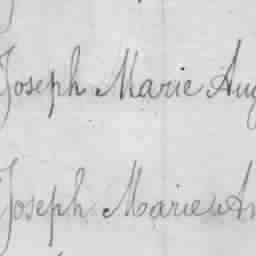 Joseph Marie Aug
Joseph Marie An